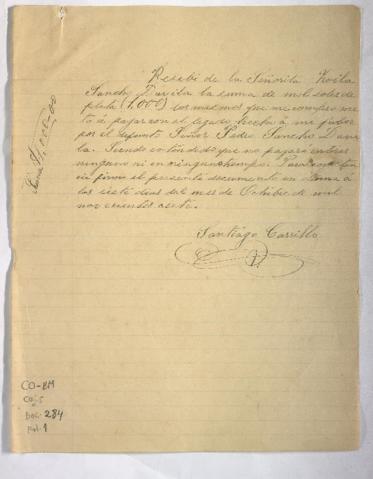 Recibí de la Señorita Zoila
Sancho Davila la suma de mil soles de
plata (1,000) los mismos que me comprome
to á pagar con el legado hecho á mi favor
por el difunto Señor Pedro Sancho Davi
la. Siendo entendido que no pagaré interes
ninguno ni en ningun tiempo. Para
firmo el presente documento en Lima á
los siete dias del mes de Octubre de mil
novecientos siete.
Santiago Carrillo
1,000-00
CO-BM
Doc. 284
fol. 1